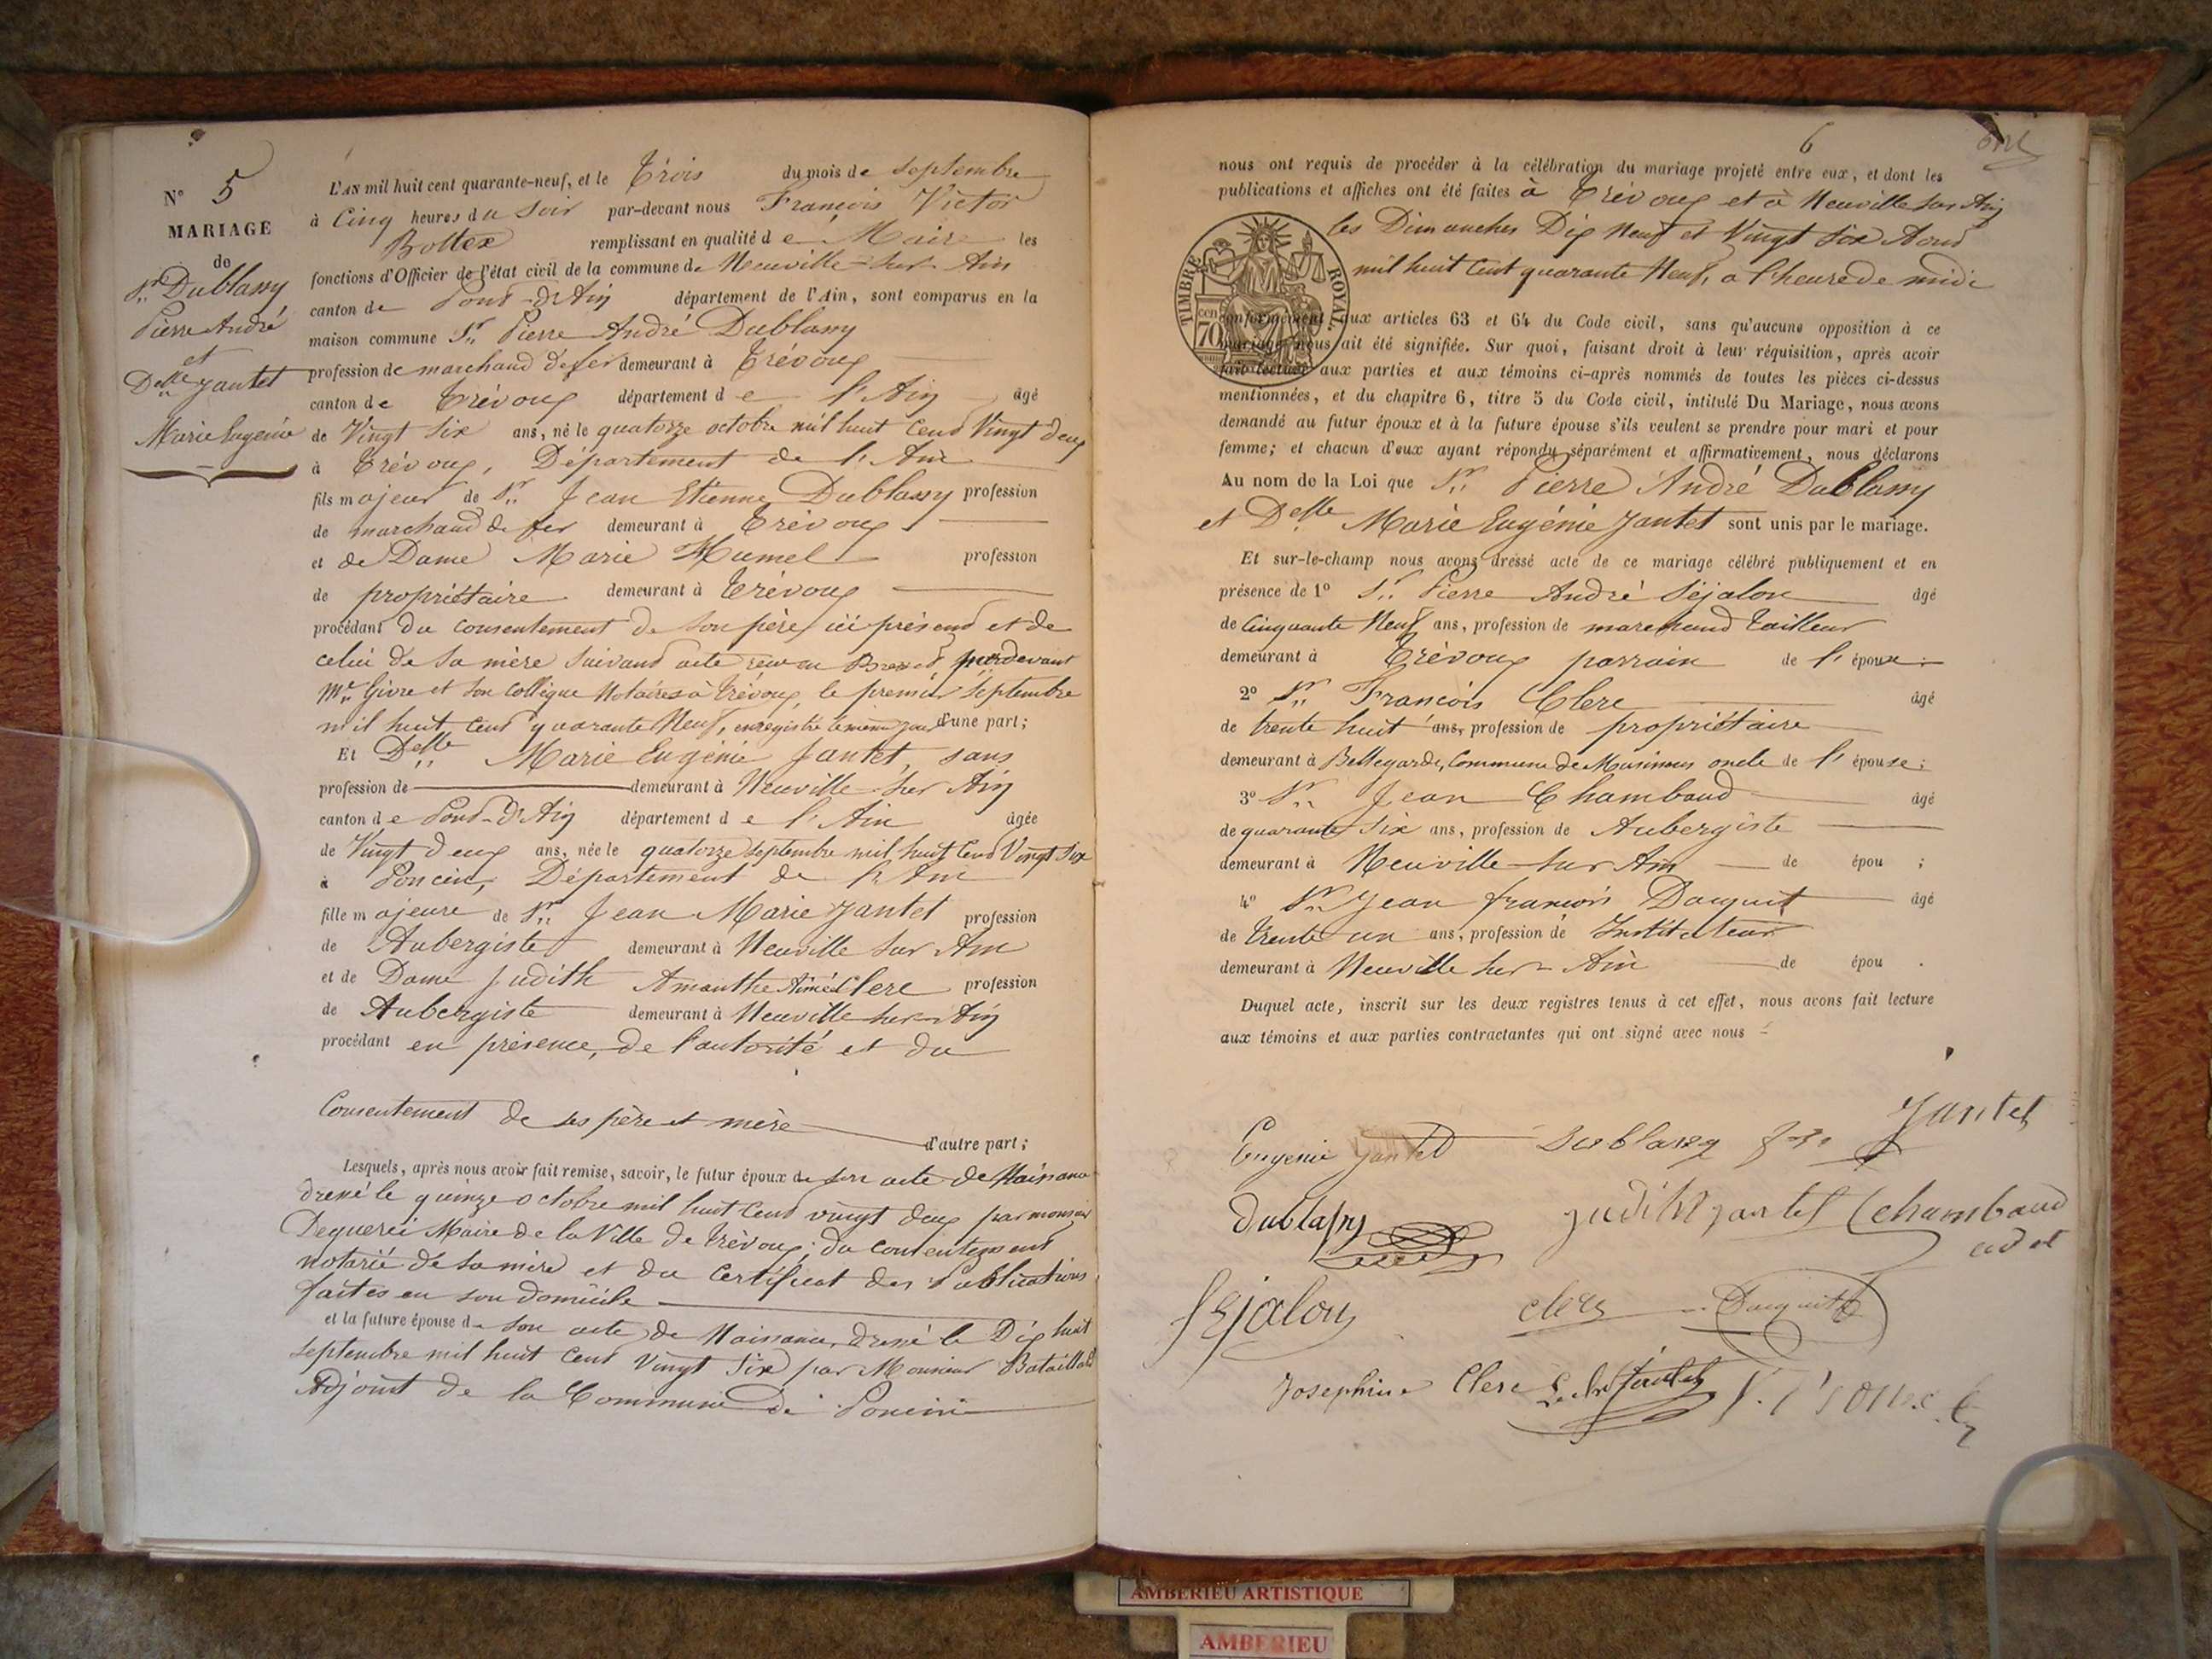 N° 5
MARIAGE
de
Sr Dublassy
Pierre André
et
Delle Jantet
Marie Eugénie
L'AN mil huit cent quarante-neuf, et le Trois du mois de septembre
à Cinq heures du Soir par-devant nous François Victor
Bottex remplissant en qualité de Maire les
fonctions d'Officier de l'état civil de la commune de Neuville-sur-Ain
canton de Pont-d'Ain département de l'Ain, sont comparus en la
maison commune Sr Pierre André Dublassy
profession de marchand de fer demeurant à Trévoux
canton de Trévoux département de l'Ain âgé
de Vingt Six ans, né le quatorze octobre mil huit Cent Vingt deux
à Trévoux, Département de l'Ain
fils majeur de Sr Jean Etienne Dublassy profession
de marchand de fer demeurant à Trévoux
et de Dame Marie Humel profession
de propriétaire demeurant à Trévoux
procédant du consentement de son père ici présent et de
celui de sa mère suivant acte reçu en Brevet pardevant
Me Givre et son collègue Notaires à Trévoux, le premier Septembre
mil huit Cent quarante Neuf, enregistré le même jour d'une part;
Et Delle Marie Eugénie Jantet, sans
profession de demeurant à Neuville-sur Ain
canton de Pont-d'Ain département de l'Ain âgée
de Vingt deux ans, née le quatorze septembre mil huit Cent Vingt Six
à Poncin, Département de l'Ain
fille majeure de Sr Jean Marie Jantet profession
de Aubergiste demeurant à Neuville sur Ain
et de Dame Judith Amanthe Aimée Clerc profession
de Aubergiste demeurant à Neuville sur Ain
procédant en présence, de l'autorité et du
Consentement de ses père et mère d'autre part;
Lesquels, après nous avoir fait remise, savoir, le futur époux de son acte de Naissance
dressé le quinze octobre mil huit Cent vingt deux par monsieur
Maire de la Ville de Trévoux; du consentement
notarié de sa mère et du Certificat des Publications
faites en son domicile
et la future épouse de son acte de Naissance, dressé le Dix huit
septembre mil huit Cent Vingt Six par Monsieur Bataillard
Adjoint de la Commune de Poncin
6
nous ont requis de procéder à la célébration du mariage projeté entre eux, et dont les
publications et affiches ont été faites à Trévoux et à Neuville sur Ain
les Dimanches Dix Neuf et Vingt Six Aout
mil huit Cent quarante Neuf, a l'heure de midi
TIMBRE ROYAL
cen 70
conformément aux articles 63 et 64 du Code civil, sans qu'aucune opposition à ce
mariage nous ait été signifiée. Sur quoi, faisant droit à leur réquisition, après avoir
fait lecture aux parties et aux témoins ci-après nommés de toutes les pièces ci-dessus
mentionnées, et du chapitre 6, titre 5 du Code civil, intitulé Du Mariage, nous avons
demandé au futur époux et à la future épouse s'ils veulent se prendre pour mari et pour
femme; et chacun d'eux ayant répondu séparément et affirmativement, nous déclarons
Au nom de la Loi que Sr Pierre André Dublassy
et Delle Marie Eugénie Jantet sont unis par le mariage.
Et sur-le-champ nous avons dressé acte de ce mariage célébré publiquement et en
présence de 1° Sr Pierre André Séjalon âgé
de Cinquante Neuf ans, profession de marchand Tailleur
demeurant à Trévoux parrain de l'époux.
2° Sr François Clerc âgé
de trente huit ans, profession de propriétaire
demeurant à Bellegarde, Commune de oncle de l'épouse;
3° Sr Jean Chambaud âgé
de quarante Six ans, profession de Aubergiste
demeurant à Neuville-sur Ain de épou ;
4° Sr Jean françois Douguit âgé
de trente un ans, profession de Instituteur
demeurant à Neuville sur-Ain de épou .
Duquel acte, inscrit sur les deux registres tenus à cet effet, nous avons fait lecture
aux témoins et aux parties contractantes qui ont signé avec nous
Eugenie Jantet Dublassy Jantet
Dublassy Judith Jantet Chambaud
Sejalon Clerc Douguit
Josephine Clerc
AMBERIEU ARTISTIQUE
AMBERIEU